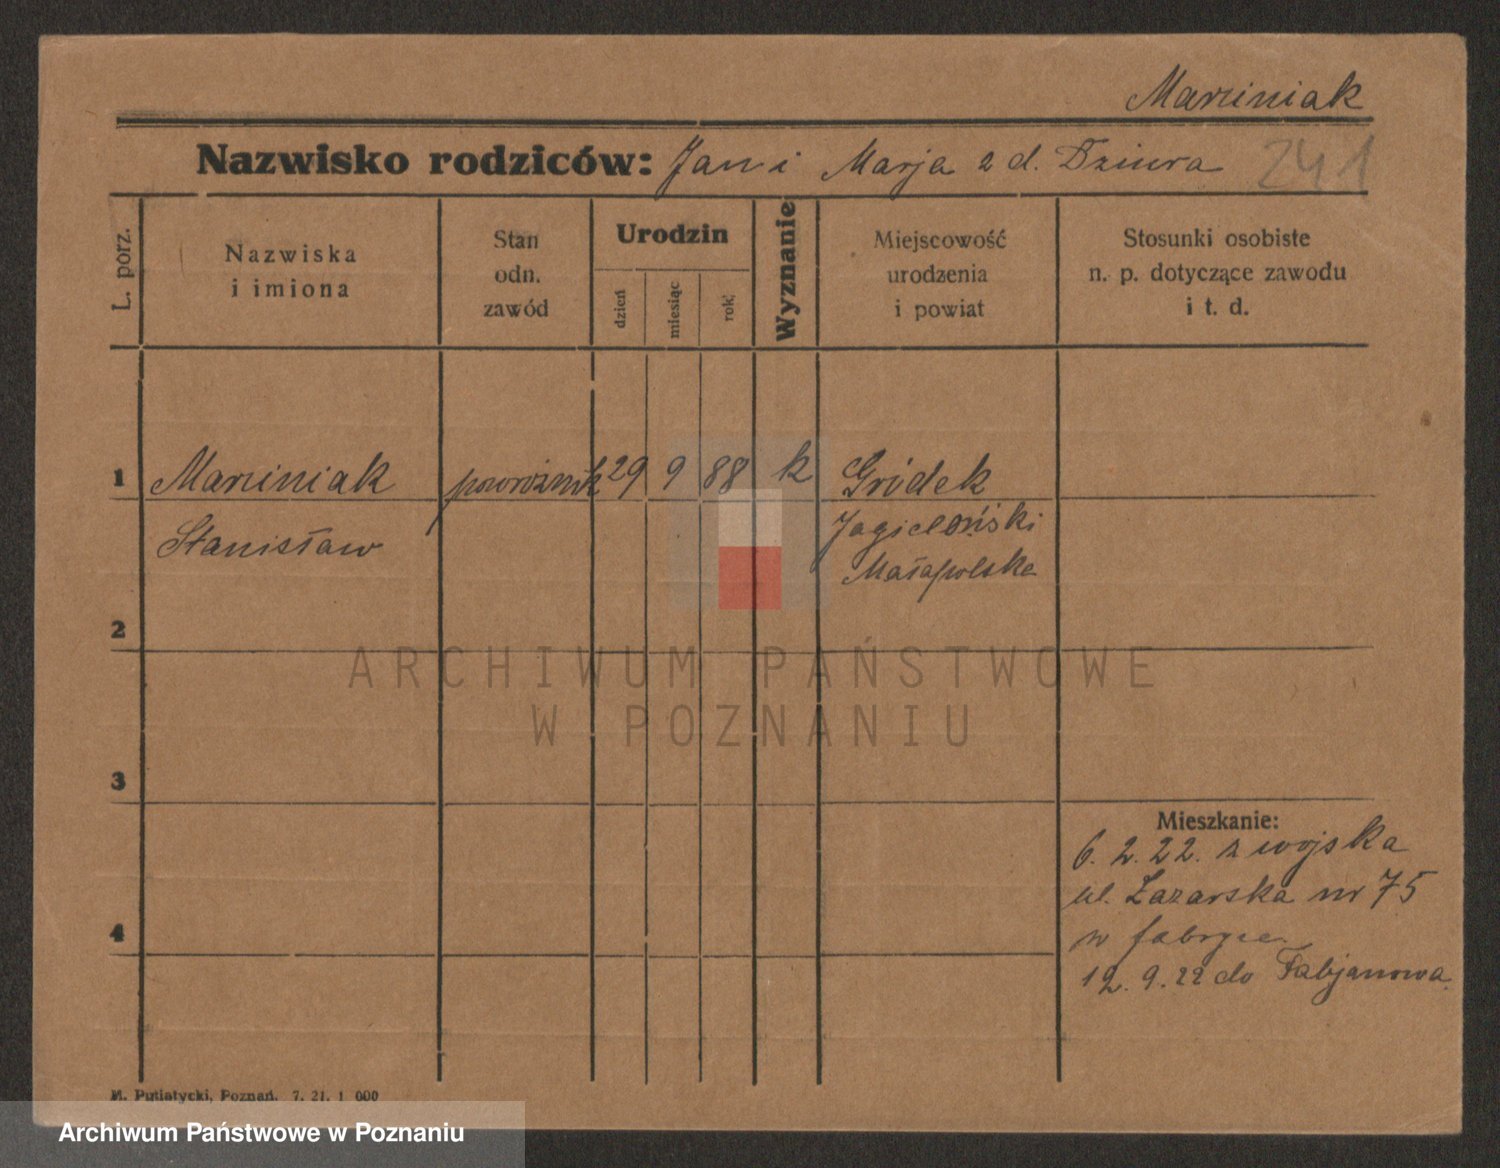 Marciniak
Nazwisko rodziców: Jan i Marja z d. Dziura 241
L. porz.
Nazwiska
i imiona
Stan
odn.
zawód
Urodzin
dzień
miesiąc
rok
Wyznanie
Miejscowość
urodzenia
i powiat
Stosunki osobiste
n. p. dotyczące zawodu
i t. d.
1 Marciniak powroźnik 29 9 88 k Gródek
Stanisław Jagieloński
Małapolska
2
3
4
Mieszkanie:
6. 2. 22. z wojska
ul. Łazarska nr 75
w fabryce.
12. 9. 22 do Fabjanowa.
M. Putiatycki, Poznań. 7. 21. 1 000
ARCHIWUM PAŃSTWOWE
W POZNANIU
Archiwum Państwowe w Poznaniu